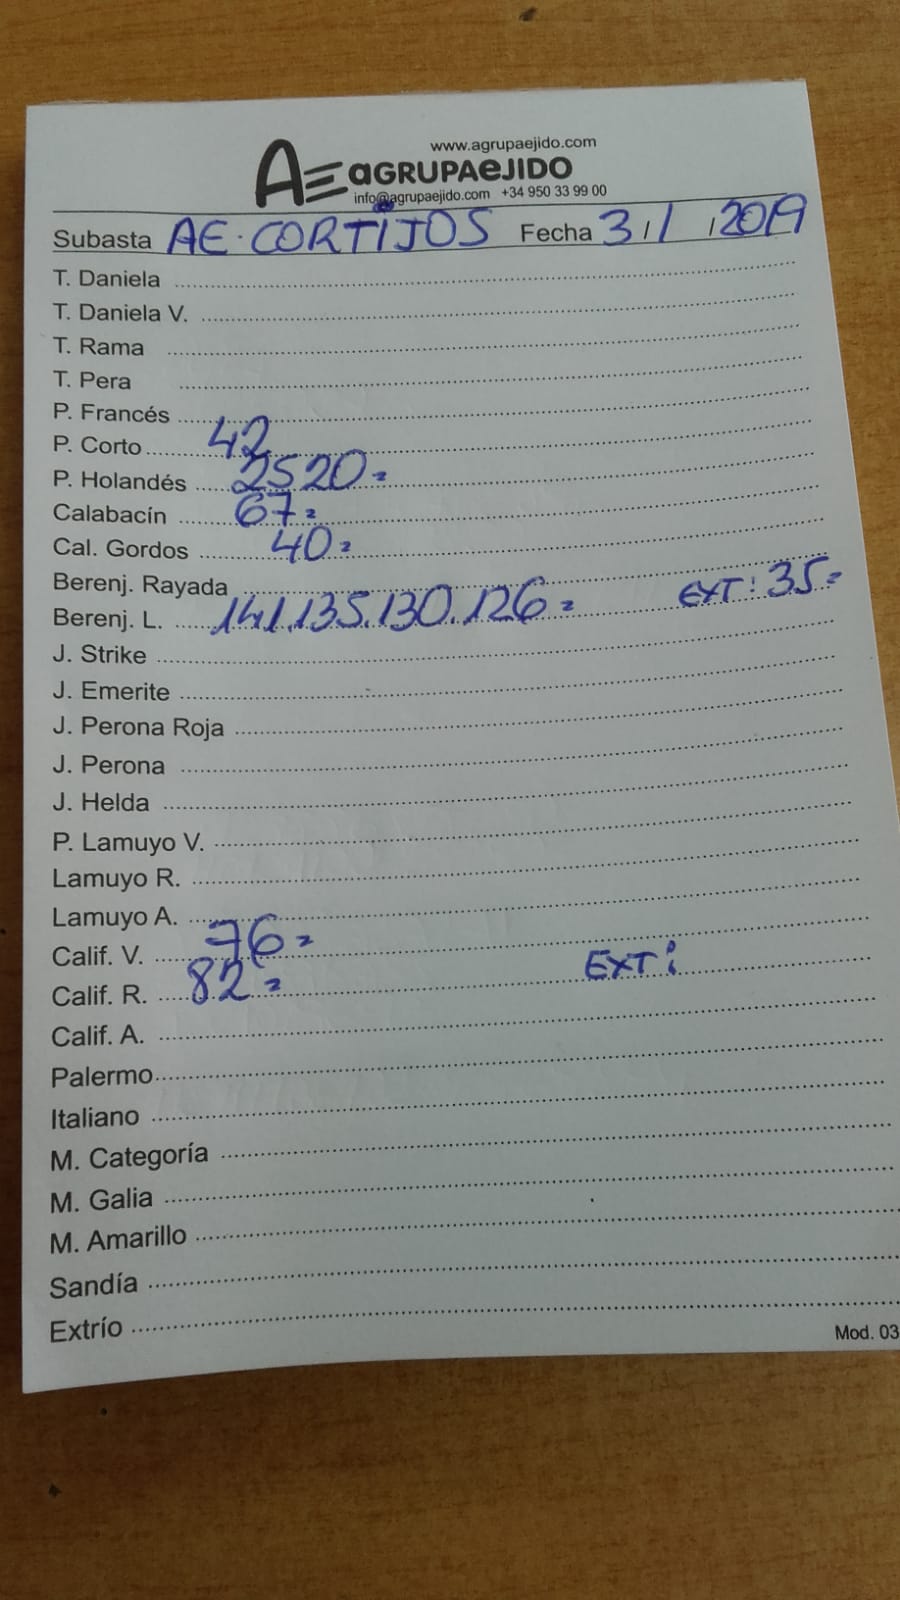 www.agrupaejido.com
AE aGRUPAeJIDO
info@agrupaejido.com +34 950 33 99 00
Subasta AE. CORTIJOS Fecha 3/1/2019
T. Daniela
T. Daniela V.
T. Rama
T. Pera
P. Francés
P. Corto 42
P. Holandés 2520=
Calabacín 67=
Cal. Gordos 40=
Berenj. Rayada
Berenj. L. 141.135.130.126= EXT: 35=
J. Strike
J. Emerite
J. Perona Roja
J. Perona
J. Helda
P. Lamuyo V.
Lamuyo R.
Lamuyo A.
Calif. V. 76=
Calif. R. 82= EXT:
Calif. A.
Palermo
Italiano
M. Categoría
M. Galia
M. Amarillo
Sandía
Extrío
Mod. 03